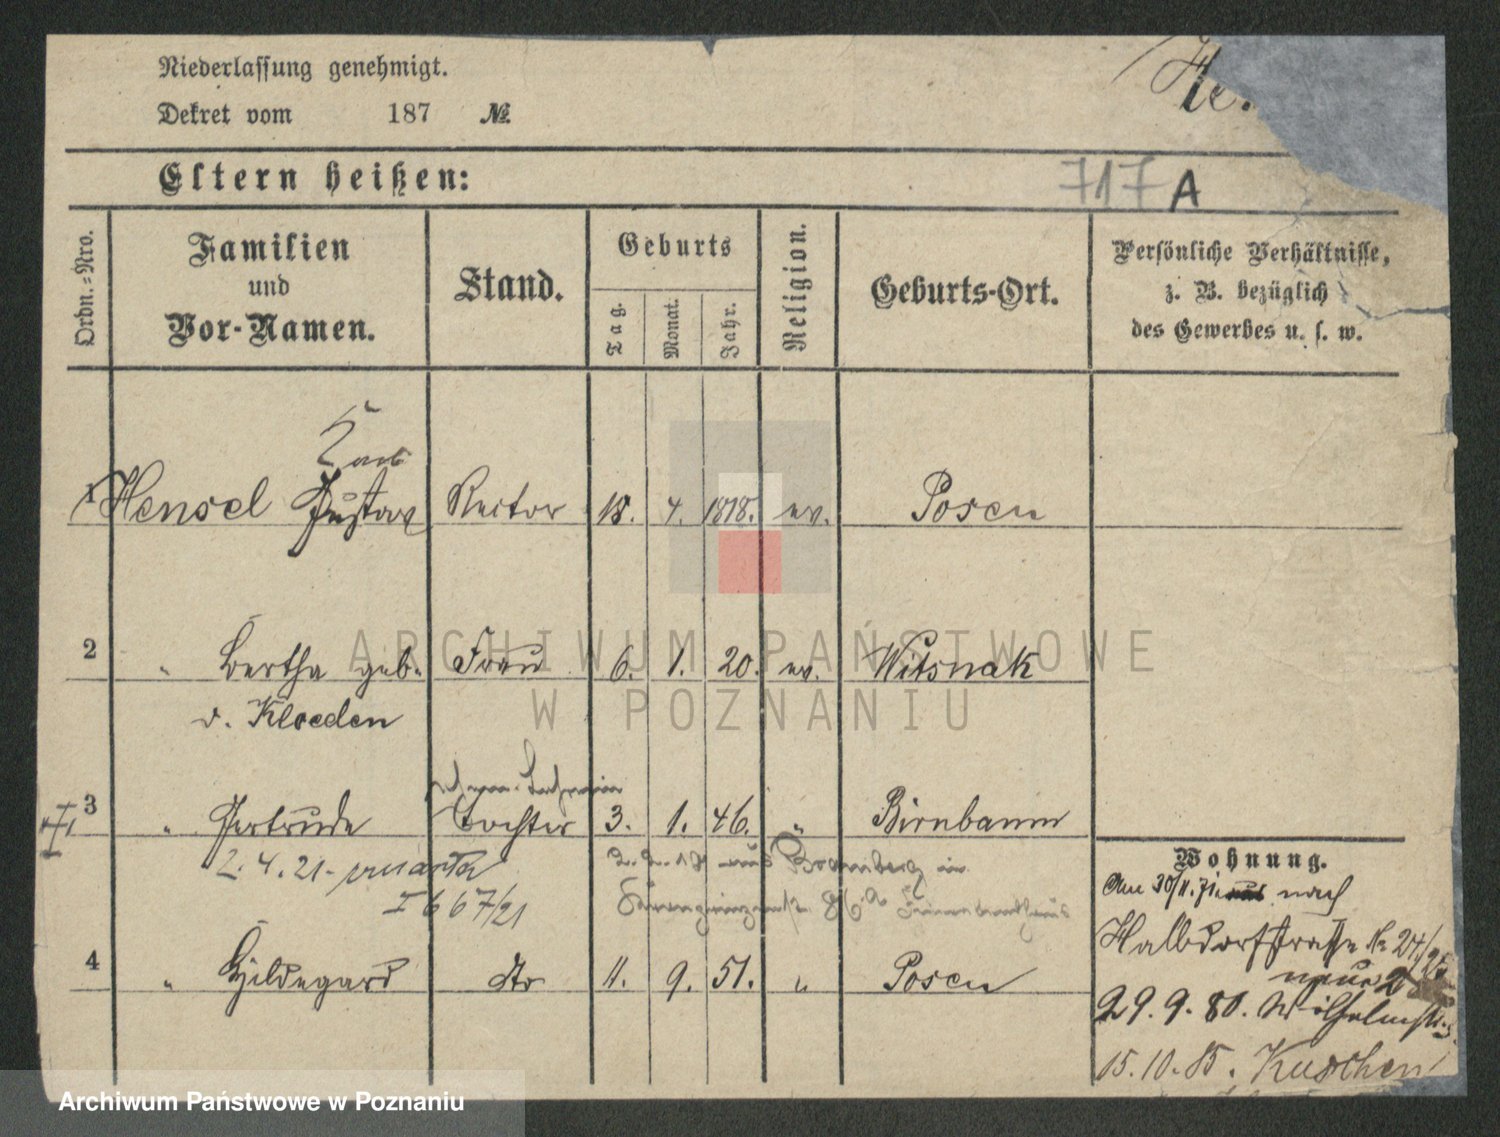 Niederlassung genehmigt.
Dekret vom 187 №
He.
Eltern heißen:
717 A
Ordn.-Nro.
Familien und Vor-Namen.
Stand.
Geburts
Tag.
Monat.
Jahr.
Religion.
Geburts-Ort.
Persönliche Verhältnisse,
z. B. bezüglich
des Gewerbes u. s. w.
1 Hensel Gustav Rector 18. 4. 1818. ev. Posen
2 " Bertha geb. Frau 6. 1. 20. ev. Witsnak
v. Kloeden
3 " Gertrude Tochter 3. 1. 46. " Birnbaum
2. 4. 21
aus Bromberg in
I 667/21
4 " Hildegard dto 11. 9. 51. " Posen
Wohnung.
Am 30/11.71 nach
Halbdorfstrasse No 24/25
29. 9. 80. Wilhelmstr.
15. 10. 85.
ARCHIWUM PAŃSTWOWE
W POZNANIU
Archiwum Państwowe w Poznaniu